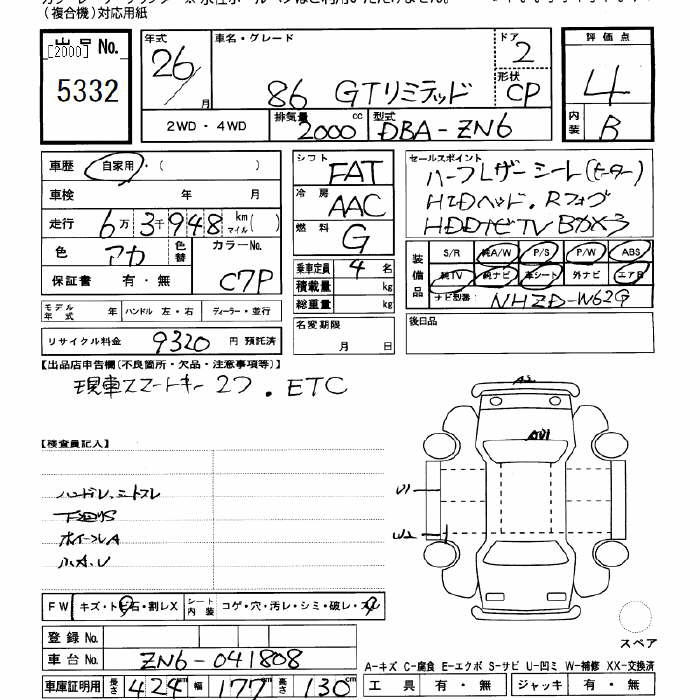 (複合機)対応用紙
出品 No. 年式 車名・グレード ドア 2 評価点
[2000] 26 形状 4
5332 月 86 GTリミテッド CP
2WD・4WD 排気量 2000 cc 型式 DBA-ZN6 内装 B
車歴 自家用・( ) シフト FAT セールスポイント
車検 年 月 冷房 AAC ハーフレザーシート(ヒーター)
走行 6万3千948 km マイル( ) HIDヘッド.Rフォグ
色 アカ 色替 カラーNo. 燃料 G HDDナビTVBカメラ
保証書 有・無 C7P 乗車定員 4 名 装備品 S/R 純A/W P/S P/W ABS
積載量 kg 純TV 純ナビ 革シート 外ナビ エアB
モデル年式 年 ハンドル 左・右 ディーラー・並行 総重量 kg ナビ型番 NHZD-W62G
リサイクル料金 9320 円 預託済 名変期限 後日品
月 日
【出品店申告欄(不良箇所・欠品・注意事項等)】
現車スマートキー2つ.ETC
【検査員記入】
U1
W2
FW キズ・トビ石・割レX シート内装 コゲ・穴・汚レ・シミ・破レ・スレ
登録 No.
車台 No. ZN6-041808 スペア
A-キズ C-腐食 E-エクボ S-サビ U-凹ミ W-補修 XX-交換済
車庫証明用 長さ 424 cm 幅 177 cm 高さ 130 cm 工具 有・無 ジャッキ 有・無